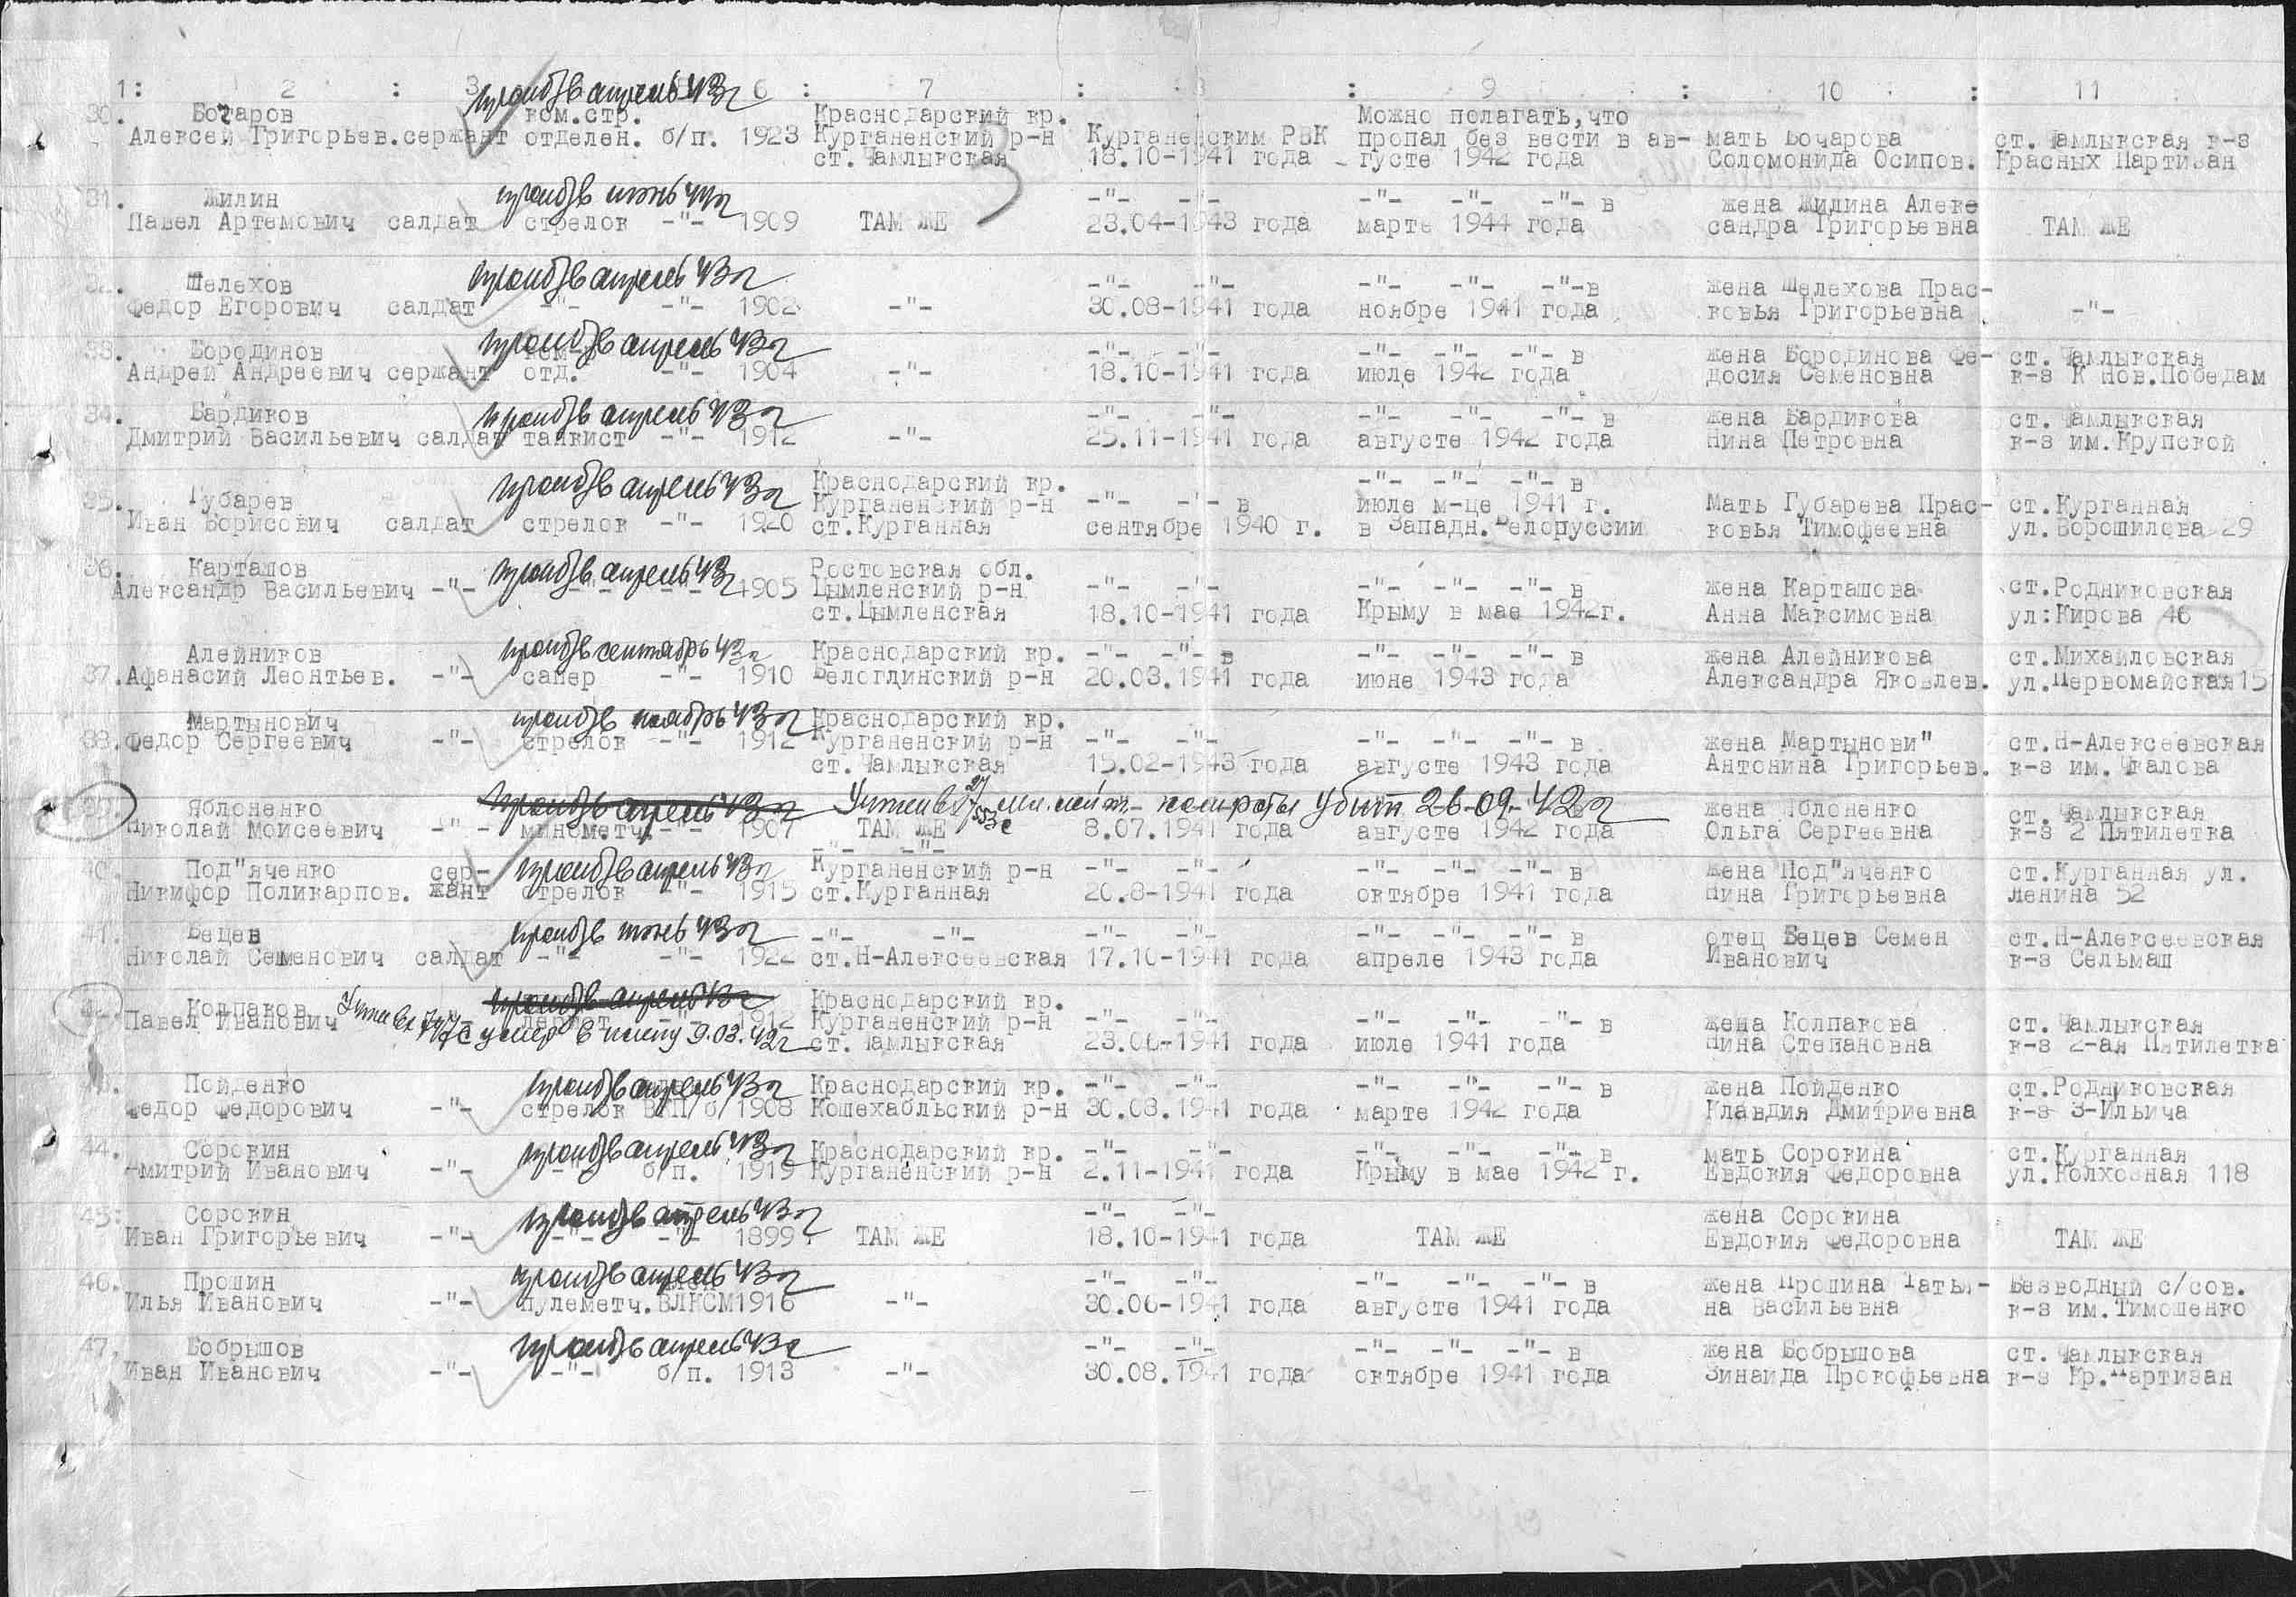 1: 2 : 3 6 : 7 : 8 : 9 : 10 : 11
проп б/в апрель 43г
30. Бочаров ком.стр. Краснодарский кр. Можно полагать,что
Алексей Григорьев.сержант отделен. б/п. 1923 Курганенский р-н Курганенским РВК пропал без вести в ав- мать Бочарова ст.Чамлыкская к-з
ст.Чамлыкская 18.10-1941 года густе 1942 года Соломонида Осипов. Красных Партизан
проп б/в июнь 44г
31. Жилин -"- -"- -"- -"- -"- в жена Жилина Алекс
Павел Артемович салдат стрелок -"- 1909 ТАМ ЖЕ 23.04-1943 года марте 1944 года сандра Григорьевна ТАМ ЖЕ
проп б/в апрель 43г
32. Шелехов -"- -"- -"- -"- -"-в жена Шелехова Прас-
Федор Егорович салдат -"- -"- 1902 -"- 30.08-1941 года ноябре 1941 года ковья Григорьевна -"-
проп б/в апрель 43г
33. Бородинов ком- -"- -"- -"- -"- -"- в жена Бородинова Фе- ст.Чамлыкская
Андрей Андреевич сержант отд. -"- 1904 -"- 18.10-1941 года июле 1942 года досия Семеновна к-з К Нов.Победам
проп б/в апрель 43г
34. Бардиков -"- -"- -"- -"- -"- в жена Бардикова ст.Чамлыкская
Дмитрий Васильевич салдат танкист -"- 1912 -"- 25.11-1941 года августе 1942 года Нина Петровна к-з им.Крупской
проп б/в апрель 43г Краснодарский кр. -"- -"- -"- в
35. Губарев Курганенский р-н -"- -"- в июле м-це 1941 г. Мать Губарева Прас- ст.Курганная
Иван Борисович салдат стрелок -"- 1920 ст.Курганная сентябре 1940 г. в Западн.Белоруссии ковья Тимофеевна ул.Ворошилова 29
проп б/в апрель 43г
36. Карташов Ростовская обл.
Александр Васильевич -"- -"- -"- 1905 Цымленский р-н -"- -"- -"- -"- -"- в жена Карташова ст.Родниковская
ст.Цымленская 18.10-1941 года Крыму в мае 1942г. Анна Максимовна ул:Кирова 46
проп б/в сентябрь 43г
Алейников Краснодарский кр. -"- -"- в -"- -"- -"- в жена Алейникова ст.Михайловская
37.Афанасий Леонтьев. -"- сапер -"- 1910 Белоглинский р-н 20.03.1941 года июне 1943 года Александра Яковлев. ул.Первомайская15
Мартынович проп б/в ноябрь 43г Краснодарский кр.
38.Федор Сергеевич -"- стрелок -"- 1912 Курганенский р-н -"- -"- -"- -"- -"- в жена Мартынови" ст.Н-Алексеевская
ст.Чамлыкская 15.02-1943 года августе 1943 года Антонина Григорьев. к-з им.Чкалова
проп б/в апрель 43г убит 26-09-42г
39. Яблоненко жена Яблоненко ст.Чамлыкская
Николай Моисеевич -"- минометч. -"- 1907 ТАМ ЖЕ 8.07.1941 года августе 1942 года Ольга Сергеевна к-з 2 Пятилетка
-"- -"-
проп б/в апрель 43г
40. Под"яченко сер- Курганенский р-н -"- -"- -"- -"- -"- в жена Под"яченко ст.Курганная ул.
Никифор Поликарпов. жант стрелок -"- 1915 ст.Курганная 20.8-1941 года октябре 1941 года Нина Григорьевна Ленина 52
проп б/в июнь 43г
41. Бецев -"- -"- -"- -"- -"- -"- -"- в отец Бецев Семен ст.Н-Алексеевская
Николай Семенович салдат -"- -"- 1922 ст.Н-Алексеевская 17.10-1941 года апреле 1943 года Иванович к-з Сельмаш
проп б/в апрель 43г Краснодарский кр.
42. Колпаков
Павел Иванович -"- 1912 Курганенский р-н -"- -"- -"- -"- -"- в жена Колпакова ст.Чамлыкская
умер в плену 9.03.42г ст.Чамлыкская 23.06-1941 года июле 1941 года Нина Степановна к-з 2-ая Пятилетка
проп б/в апрель 43г
43. Пойденко Краснодарский кр. -"- -"- -"- -"- -"- в жена Пойденко ст.Родниковская
Федор Федорович -"- стрелок ВКП/б/ 1908 Кошехабльский р-н 30.08.1941 года марте 1942 года Клавдия Дмитриевна к-з З-Ильича
проп б/в апрель 43г
44. Сорокин Краснодарский кр. -"- -"- -"- -"- -"- в мать Сорокина ст.Курганная
Дмитрий Иванович -"- -"- б/п. 1919 Курганенский р-н 2.11-1941 года Крыму в мае 1942 г. Евдокия Федоровна ул.Колхозная 118
проп б/в апрель 43г
45: Сорокин -"- -"- жена Сорокина
Иван Григорьевич -"- -"- -"- 1899 ТАМ ЖЕ 18.10-1941 года ТАМ ЖЕ Евдокия Федоровна ТАМ ЖЕ
проп б/в апрель 43г
46. Пронин член -"- -"- -"- -"- -"- в жена Пронина Татья- Безводный с/сов.
Илья Иванович -"- пулеметч.ВЛКСМ1916 -"- 30.06-1941 года августе 1941 года на Васильевна к-з им.Тимошенко
проп б/в апрель 43г
47. Бобрышов -"- -"- -"- -"- -"- в жена Бобрышова ст.Чамлыкская
Иван Иванович -"- -"- б/п. 1913 -"- 30.08.1941 года октябре 1941 года Зинаида Прокофьевна к-з Кр.Партизан